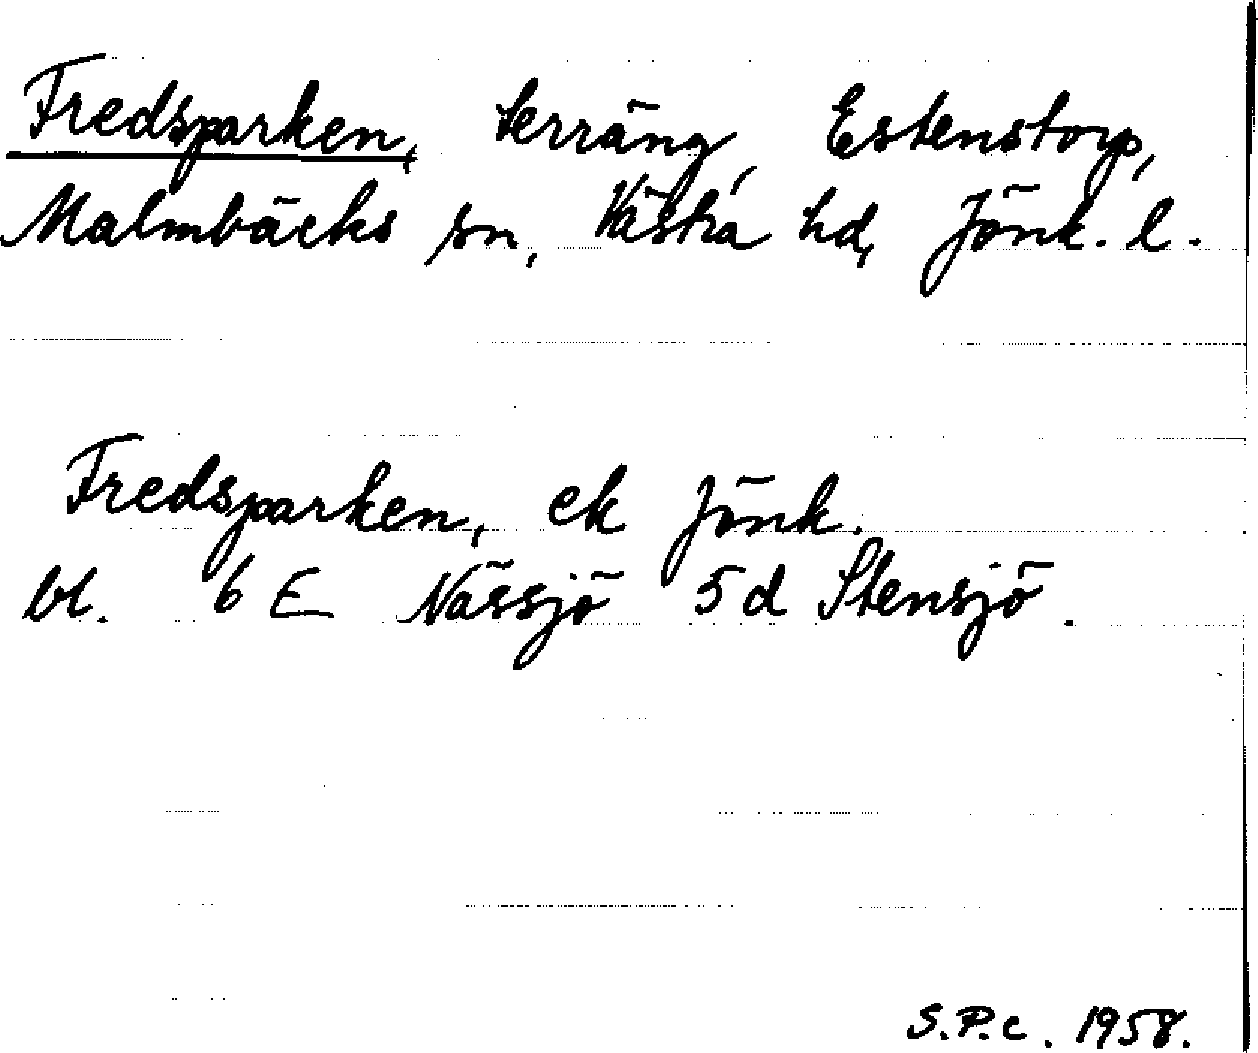 Fredsparken, terräng, Estenstorp,
Malmbäcks sn, Västra hd, Jönk. l.
Fredsparken, ek Jönk.
bl. 6 E Nässjö 5 d Stensjö.
S.P.c. 1958.